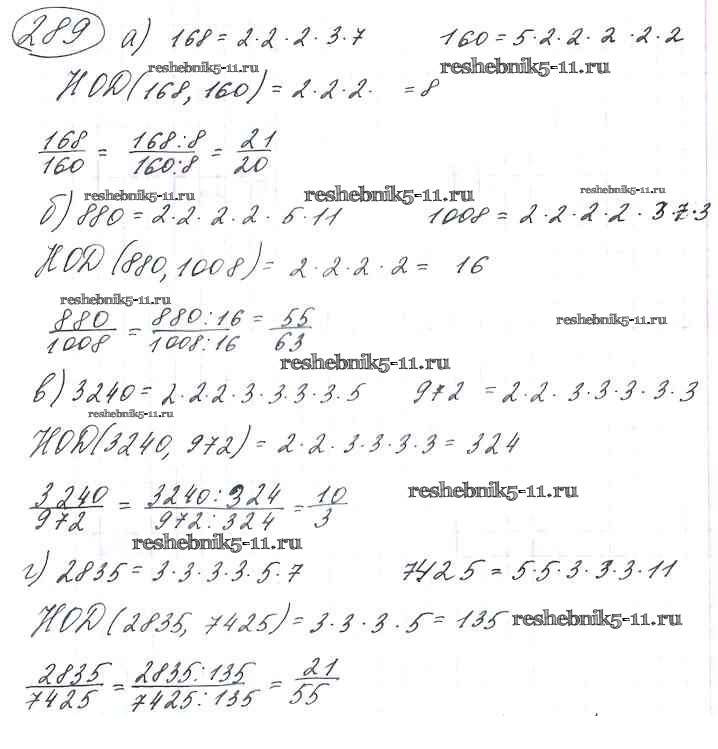 289 а) 168 = 2·2·2·3·7 160 = 5·2·2·2·2·2
reshebnik5-11.ru reshebnik5-11.ru
НОД(168, 160) = 2·2·2· = 8
168/160 = 168:8/160:8 = 21/20
reshebnik5-11.ru reshebnik5-11.ru reshebnik5-11.ru
б) 880 = 2·2·2·2·5·11 1008 = 2·2·2·2·3·7·3
НОД(880, 1008) = 2·2·2·2 = 16
reshebnik5-11.ru
880/1008 = 880:16/1008:16 = 55/63
reshebnik5-11.ru
reshebnik5-11.ru
в) 3240 = 2·2·2·3·3·3·3·5 972 = 2·2·3·3·3·3·3
reshebnik5-11.ru
НОД(3240, 972) = 2·2·3·3·3·3 = 324
3240/972 = 3240:324/972:324 = 10/3
reshebnik5-11.ru
reshebnik5-11.ru
г) 2835 = 3·3·3·3·5·7 7425 = 5·5·3·3·3·11
НОД(2835, 7425) = 3·3·3·5 = 135 reshebnik5-11.ru
2835/7425 = 2835:135/7425:135 = 21/55